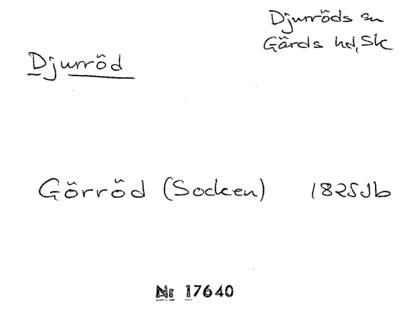 Djurröds sn
Gärds hd, Sk
Djurröd
Görröd (Socken) 1825 Jb
Nr 17640